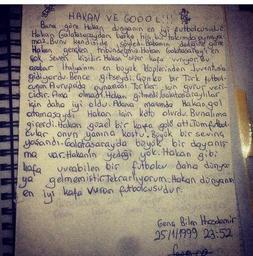 HAKAN VE GOOOL!!!
Bana göre Hakan dünyanın en iyi futbolcusudur.
Hakan Galatasaraydan başka hiç bir takımda oynaya-
maz. Bunu kendiside söyledi. Babamın dediğine göre
Hakan gençken Trabzondaymış. Hakan Galatasaray'ın
çok sevilen kişidir. Hakan süper kafa vuruyor. Bu
aralar İtalyanın en büyük kulüplerinden Juventusa
gidiyordu. Bence gitseydi iyi olur bir Türk futbol-
cunun Avrupada oynaması Türkler için gurur veri-
cidir. Ama olmadı. Hakan gitmedi. Galatasaraylılar
için daha iyi oldu. Adana maçında Hakan gol
atamasaydı Hakan için kötü olurdu. Bunalıma
girerdi. Hakan güzel bir kafa golü attı. Tüm futbol-
cular onun yanına koştu. Büyük bir sevinç
yaşandı. Galatasarayda büyük bir dayanış-
ma var. Hakanın yedeği yok. Hakan gibi
kafa vurabilen bir futbolcu daha dünya-
ya gelmemiştir. Tekrarlıyorum. Hakan dünyanın
en iyi kafa vuran futbolcusudur.
Genç Bilim
25/1/1999 23:52